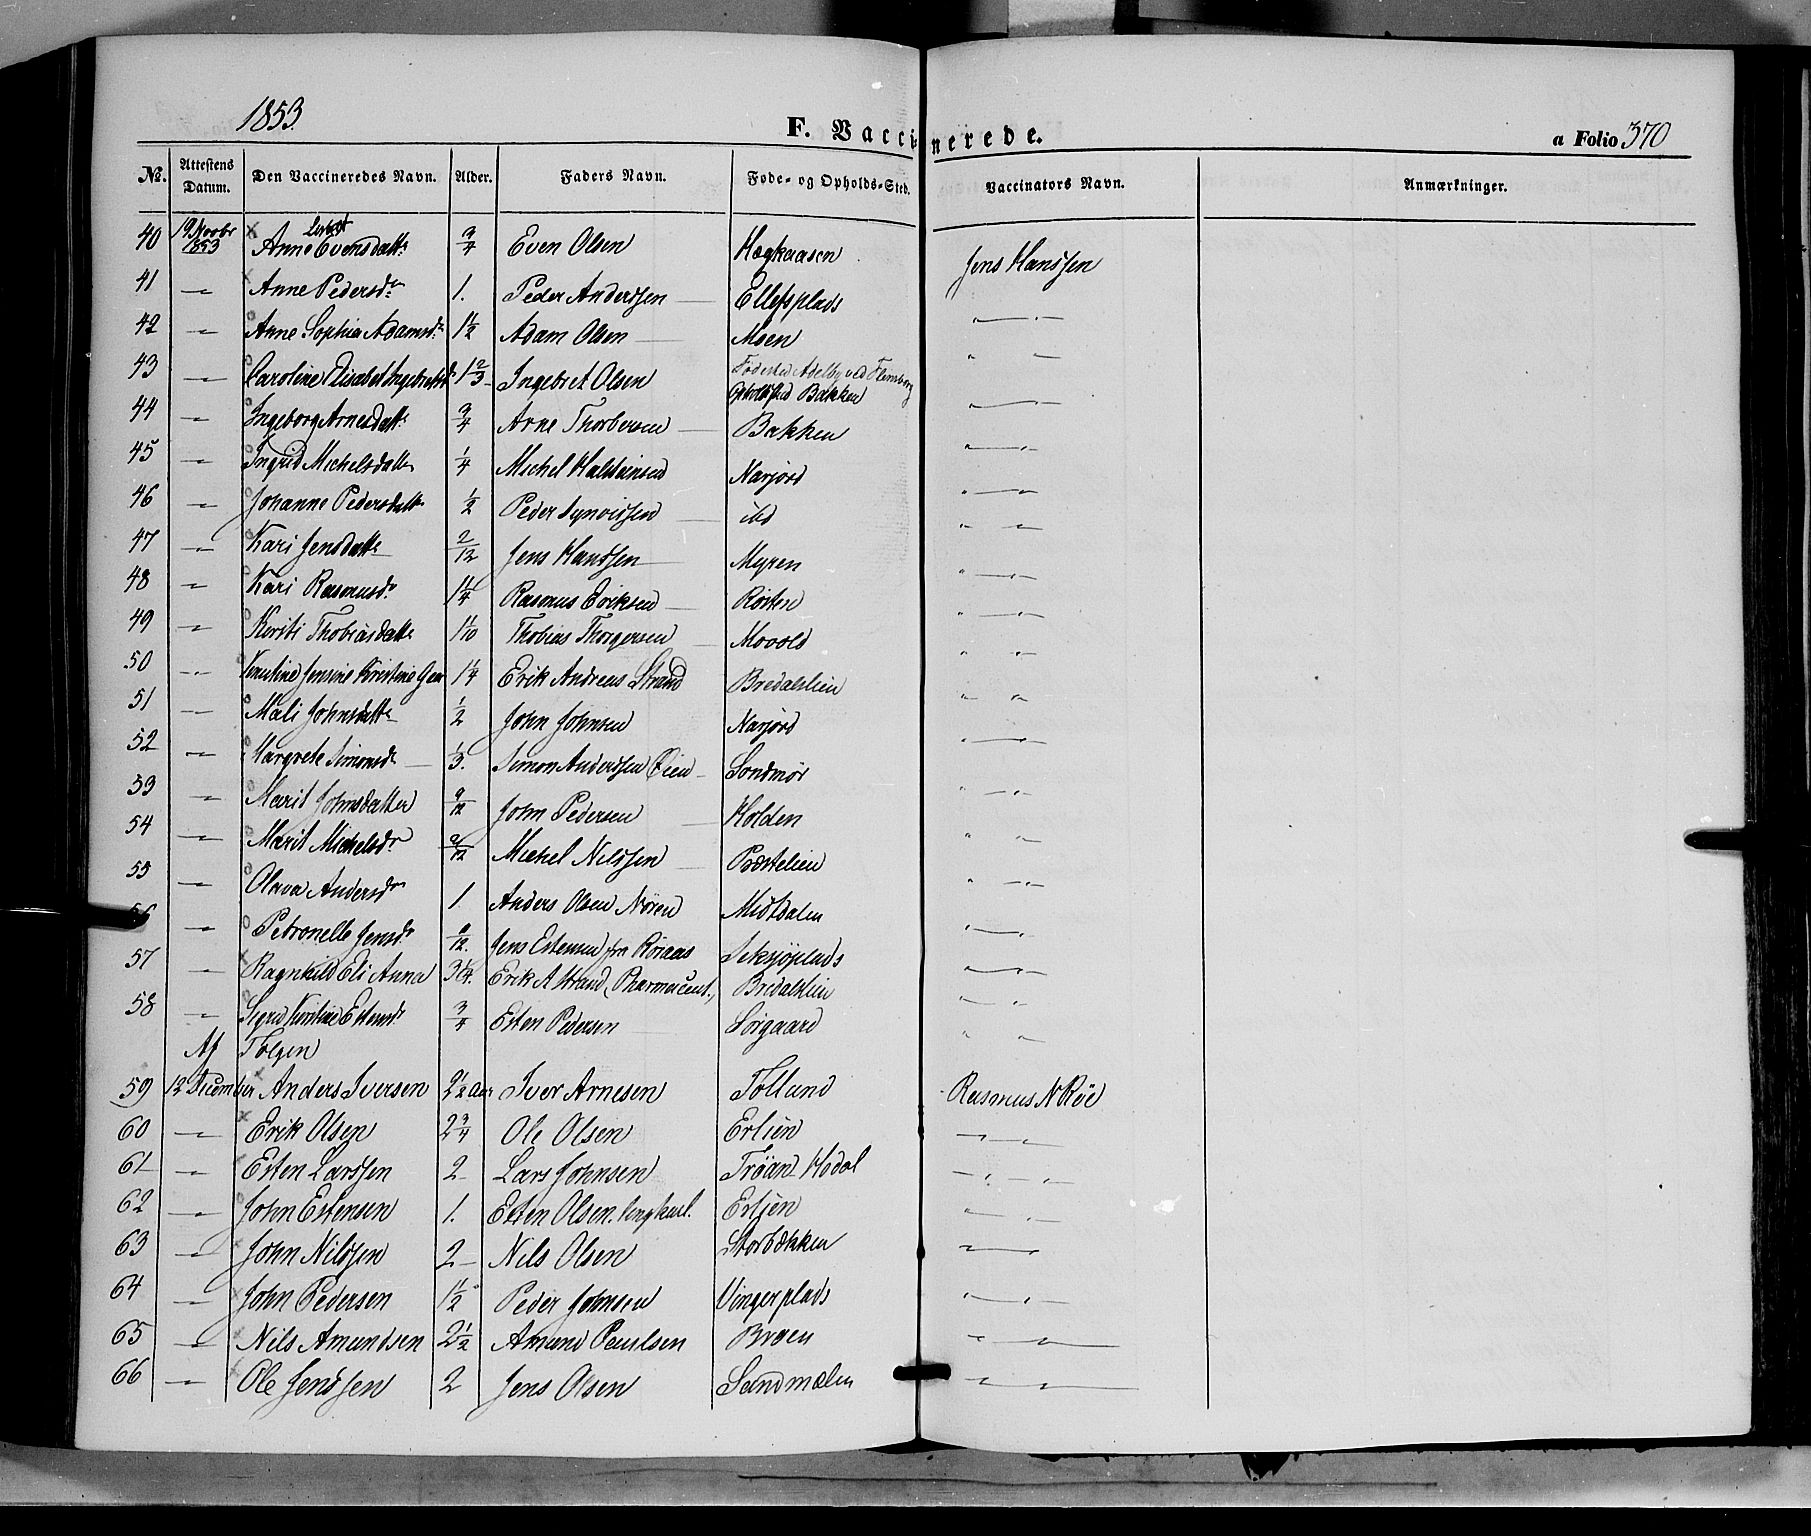 1853.
F. Vaccinerede.
a Folio 370
No. Attestens Datum. Den Vaccineredes Navn. Alder. Faders Navn. Føde- og Opholds-Sted. Vaccinators Navn. Anmærkninger.
40 19 Novbr 1853 Anne Evensdattr 3/4 Even Olsen Hegkaasen Jens Hanssen
41 — Anne Pedersdr 1. Peder Anderssen Ellefsplads
42 — Anne Sophia Adamsdr 1 1/2 Adam Olsen Moen
43 — Caroline Elisabet Ingebretsdr 1 2/3 Ingebret Olsen Fødested Adelby ved Flensborg
Opholdssted Bakken
44 — Ingeborg Arnesdattr 3/4 Arne Thorbersen Bakken
45 — Ingrid Michelsdattr 1/4 Michel Halsteinsen Narjord
46 — Johanne Pedersdattr 1/2 Peder Synvissen ibd
47 — Kari Jensdattr 2/12 Jens Hanssen Myren
48 — Kari Rasmusdr 1 1/4 Rasmus Eriksen Røsten
49 — Kirsti Thobiasdattr 1 1/10 Thobias Thorgersen Movold
50 — Jensine Kristine 1 1/4 Erik Andreas Strand Bredalslien
51 — Mali Johnsdattr 1/2 John Johnsen Narjord
52 — Margrete Simonsdr 1/3. Simon Anderssen Øien Sondmør
53 — Marit Johnsdatter 9/12 John Pedersen Holden
54 — Marit Michelsdr 9/12 Michel Nilssen Præstelien
55 — Olava Andersdr 1. Anders Olsen Nøren Midtdalen
56 — Petronelle Jensdr 9/12. Jens Estensen fra Røraas Seksjøplads
57 — Ragnhild Eli Anna 3 1/4. Erik A Strand, Pharmaceut., Bredalslien
58 — Sigrid Kirstine Estensdr 3/4 Esten Pedersen Sørgaard
Af Tolgen
59 12 December Anders Iversen 2 1/2 Aar Iver Arnesen Tollund Rasmus N Røe
60 — Erik Olsen 2 3/4 Ole Olsen Erlien
61 — Esten Larssen 2 Lars Johnsen Trøan Hodal
62 — John Estensen 1. Esten Olsen. Ungkarl. Erlien
63 — John Nilssen 2 — Nils Olsen Storbækken
64 — John Pedersen 1 1/2 Peder Johnsen Vingerplads
65 — Nils Amundsen 2 1/2 Amund Paulsen Broen
66 — Ole Jenssen 2 Jens Olsen Sandmælen